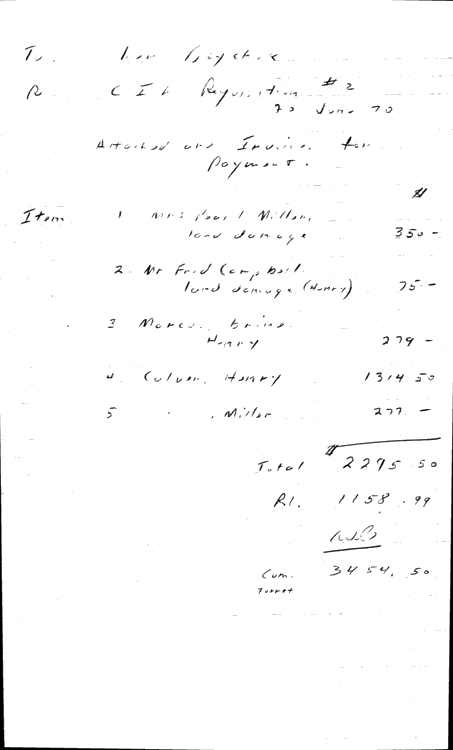 To
Re C I L Requisition #2
20 June 70
Attached are Invoices for
Payment.
$
Item 1 Mrs Pearl Miller,
land damage 350 -
2. Mr Fred Campbell
land damage (Henry) 75. -
3 Brine
Henry 279 -
4. Culver, Henry 1314 50
5 " , Miller 277. -
Total $ 2295 50
RI. 1158 . 99
Cum. 3454. 50